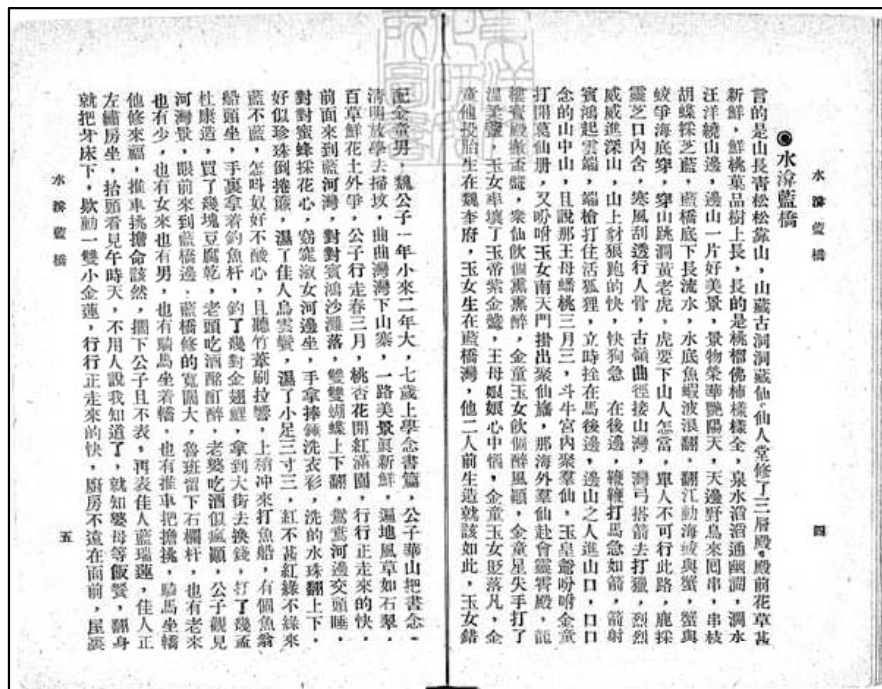 水滸藍橋
四
◉水滸藍橋
言的是山長青松松靠山，山藏古洞洞藏仙，仙人堂修了三層殿，殿前花草甚
新鮮，鮮桃菓品樹上長，長的是桃榴佛柿樣樣全，泉水滔滔通幽澗，澗水
汪洋繞山邊，邊山一片好美景，景物榮華艷陽天，天邊野鳥來回串，串枝
胡蝶採芝藍，藍橋底下長流水，水底魚蝦波浪翻，翻江動海鰲與蟹，蟹與
蛟爭海底穿，穿山跳澗黃老虎，虎要下山人怎當，單人不可行此路，鹿採
靈芝口內含，寒風刮透行人骨，古嶺曲徑接山灣，灣弓搭箭去打獵，烈烈
威威進深山，山上豺狼跑的快，快狗急 在後邊，鞭鞭打馬急如箭，箭射
賓鴻起雲端，端槍打住活狐狸，立時拴在馬後邊，邊山之人進山口，口口
念的山中山，且說那王母蟠桃三月三，斗牛宮內聚羣仙，玉皇爺吩咐金童
打開萬仙册，又吩咐玉女南天門掛出聚仙旛，那海外羣仙赴會靈霄殿，龍
樓寶殿撤盃盤，衆仙飲個熏熏醉，金童玉女飲個醉風顛，金童星失手打了
溫柔盞，玉女摔壞了玉帝紫金鶯，王母娘娘心中惱，金童玉女貶落凡，金
童他投胎生在魏李府，玉女生在藍橋灣，他二人前生造就該如此，玉女錯
配金童男，魏公子一年小來二年大，七歲上學念書篇，公子華山把書念，
清明放學去掃坟，曲曲灣灣下山寨，一路美景眞新鮮，遍地風草如石翠，
百草鮮花土外爭，公子行走春三月，桃杏花開紅滿園，行行正走來的快，
前面來到藍河灣，對對賓鴻沙灘落，雙雙蝴蝶上下翻，鴛鴦河邊交頭睡，
對對蜜蜂採花心，窈窕淑女河邊坐，手拿捧錘洗衣衫，洗的水珠翻上下，
好似珍珠倒捲簾，濕了佳人烏雲鬢，濕了小足三寸三，紅不甚紅綠不綠來
藍不藍，怎呌奴好不酸心，且聽竹葦刷拉響，上稍冲來打魚船，有個魚翁
船頭坐，手裏拿着釣魚杆，釣了幾對金翅鯉，拿到大街去換錢，打了幾盃
杜康造，買了幾塊豆腐乾，老頭吃酒酩酊醉，老婆吃酒似瘋顛，公子觀見
河灣景，眼前來到藍橋邊，藍橋修的寬闊大，魯班留下石欄杆，也有老來
也有少，也有女來也有男，也有騎馬坐着轎，也有推車把擔挑，騎馬坐轎
他修來福，推車挑擔命該然，擱下公子且不表，再表佳人藍瑞蓮，佳人正
左繡房坐，抬頭看見午時天，不用人說我知道了，就知婆母等飯餐，翻身
就把牙床下，欵動一雙小金蓮，行行正走來的快，廚房不遠在面前，屋裏
水滸藍橋
五